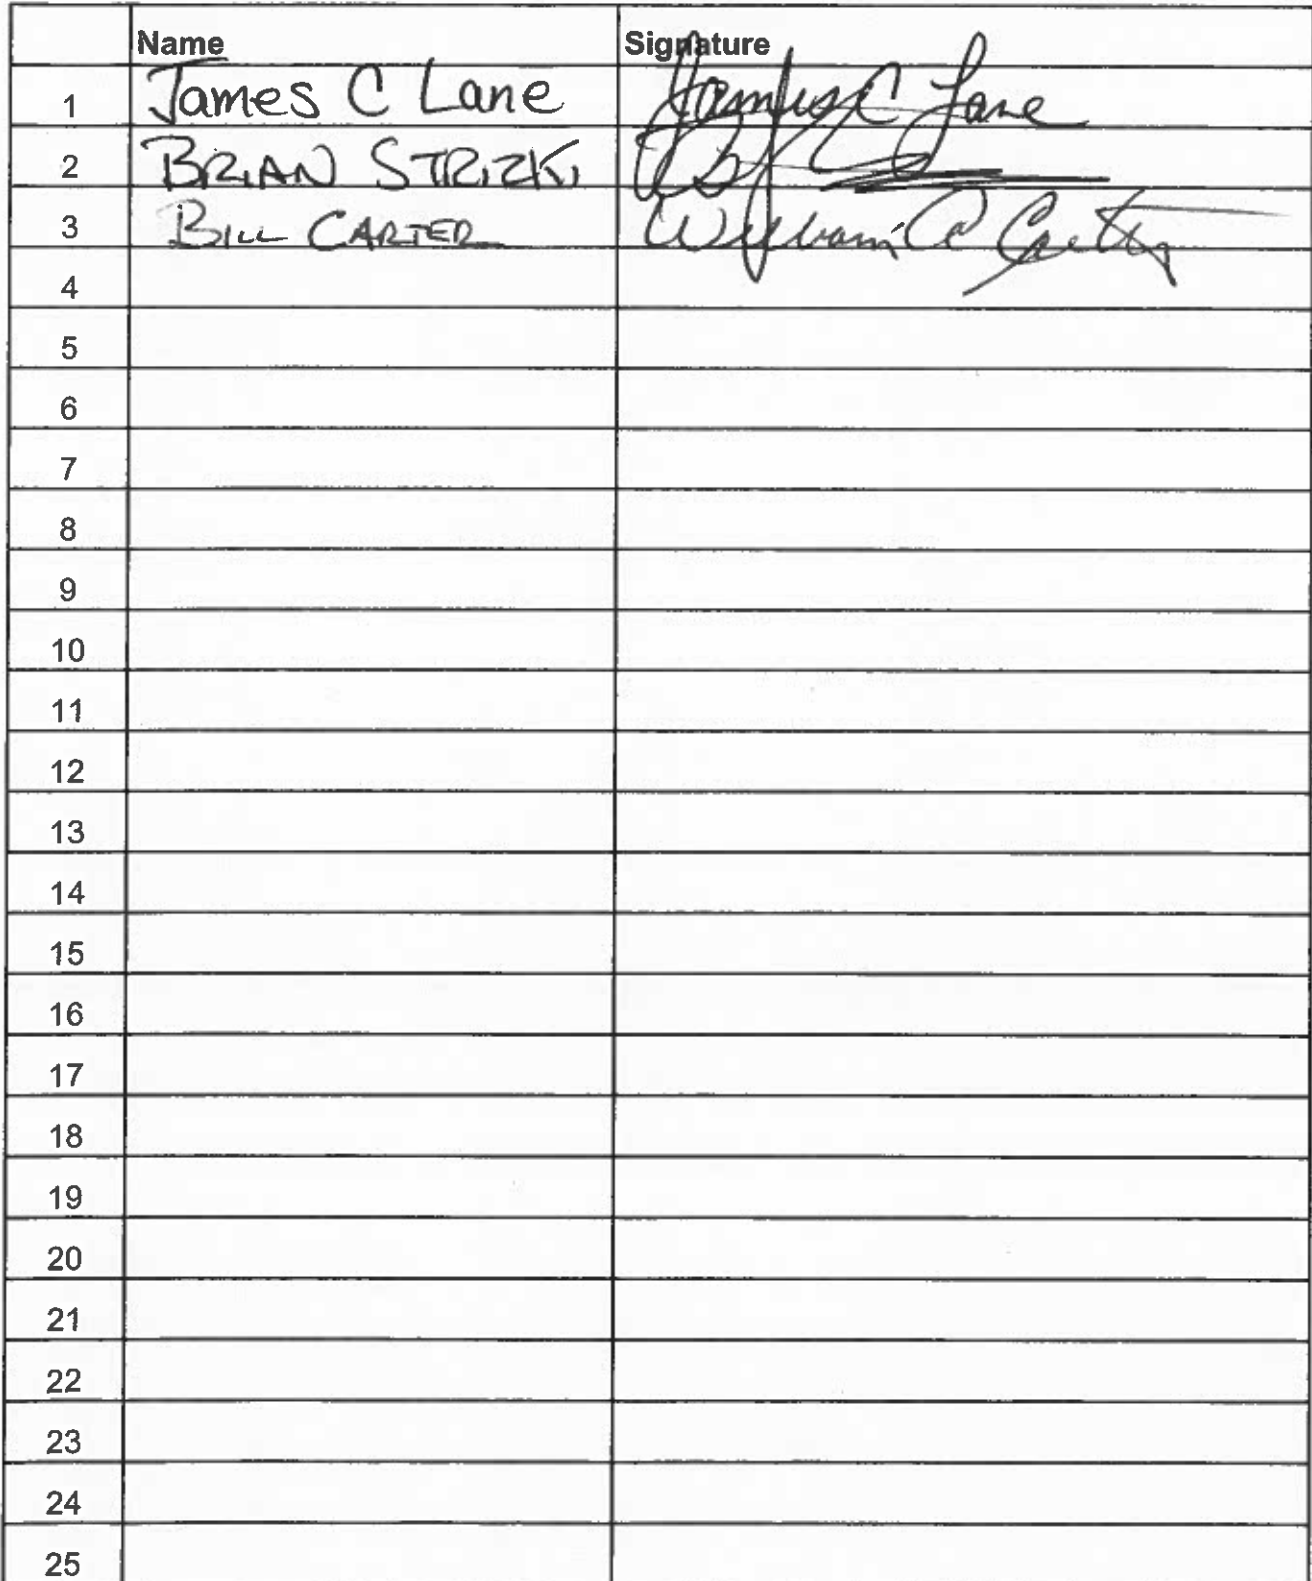 Name Signature
1 James C Lane James C Lane
2 BRIAN STRIZKI
3 BILL CARTER William C Carter
4
5
6
7
8
9
10
11
12
13
14
15
16
17
18
19
20
21
22
23
24
25